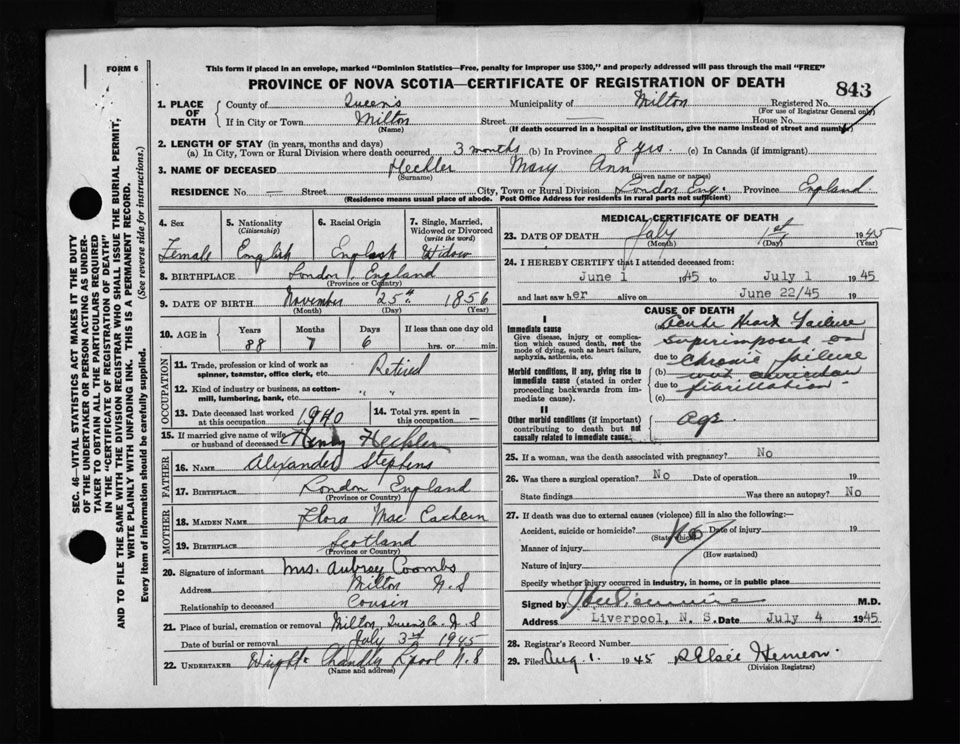 FORM 6
This form if placed in an envelope, marked "Dominion Statistics—Free, penalty for improper use $300," and properly addressed will pass through the mail "FREE"
PROVINCE OF NOVA SCOTIA—CERTIFICATE OF REGISTRATION OF DEATH
843
SEC. 46—VITAL STATISTICS ACT MAKES IT THE DUTY
OF THE UNDERTAKER OR PERSON ACTING AS UNDER-
TAKER TO OBTAIN ALL THE PARTICULARS REQUIRED
IN THE "CERTIFICATE OF REGISTRATION OF DEATH"
AND TO FILE THE SAME WITH THE DIVISION REGISTRAR WHO SHALL ISSUE THE BURIAL PERMIT,
WRITE PLAINLY WITH UNFADING INK. THIS IS A PERMANENT RECORD.
Every item of information should be carefully supplied. (See reverse side for instructions.)
1. PLACE OF DEATH
County of Queens Municipality of Milton Registered No.
(For use of Registrar General only)
If in City or Town Milton Street — House No.
(Name) (If death occurred in a hospital or institution, give the name instead of street and number)
2. LENGTH OF STAY (in years, months and days)
(a) In City, Town or Rural Division where death occurred 3 months (b) In Province 8 yrs. (c) In Canada (if immigrant)
3. NAME OF DECEASED Hechler Mary Ann
(Surname) (Given name or names)
RESIDENCE No. — Street City, Town or Rural Division London Eng. Province England
(Residence means usual place of abode. Post Office Address for residents in rural parts not sufficient)
4. Sex 5. Nationality 6. Racial Origin 7. Single, Married,
(Citizenship) Widowed or Divorced
(write the word)
Female English English Widow
8. BIRTHPLACE London, England
(Province or Country)
9. DATE OF BIRTH November 25th 1856
(Month) (Day) (Year)
10. AGE in Years Months Days If less than one day old
88 7 6 hrs. or min.
OCCUPATION
11. Trade, profession or kind of work as Retired
spinner, teamster, office clerk, etc.
12. Kind of industry or business, as cotton-
mill, lumbering, bank, etc. " "
13. Date deceased last worked 1940 14. Total yrs. spent in —
at this occupation this occupation
15. If married give name of wife Henry Hechler
or husband of deceased
FATHER
16. NAME Alexander Stephens
17. BIRTHPLACE London England
(Province or Country)
MOTHER
18. MAIDEN NAME Flora Mac Eachern
19. BIRTHPLACE Scotland
(Province or Country)
20. Signature of informant Mrs. Aubrey Coombs
Address Milton N.S
Relationship to deceased Cousin
21. Place of burial, cremation or removal Milton, Queens Co. N.S
Date of burial or removal July 3rd 1945
22. UNDERTAKER Wright Chandler L'pool N.S
(Name and address)
MEDICAL CERTIFICATE OF DEATH
23. DATE OF DEATH July 1st 1945
(Month) (Day) (Year)
24. I HEREBY CERTIFY that I attended deceased from:
June 1 1945 to July 1 1945
and last saw her alive on June 22/45 19
CAUSE OF DEATH
I
Immediate cause
Give disease, injury or complica-
tion which caused death, not the
mode of dying, such as heart failure,
asphyxia, asthenia, etc.
Acute Heart Failure
superimposed on
due to chronic failure
Morbid conditions, if any, giving rise to
immediate cause (stated in order
proceeding backwards from im-
mediate cause).
(b) with auricular
due to fibrillation
(c)
II
Other morbid conditions (if important)
contributing to death but not
causally related to immediate cause.
age
25. If a woman, was the death associated with pregnancy? No
26. Was there a surgical operation? No Date of operation 19
State findings Was there an autopsy? No
27. If death was due to external causes (violence) fill in also the following:—
Accident, suicide or homicide? No Date of injury 19
(State which)
Manner of injury
(How sustained)
Nature of injury
Specify whether injury occurred in industry, in home, or in public place
Signed by M.D.
Address Liverpool, N. S. Date July 4 1945
28. Registrar's Record Number
29. Filed Aug. 1. 1945 Elsie Hemeon.
(Division Registrar)